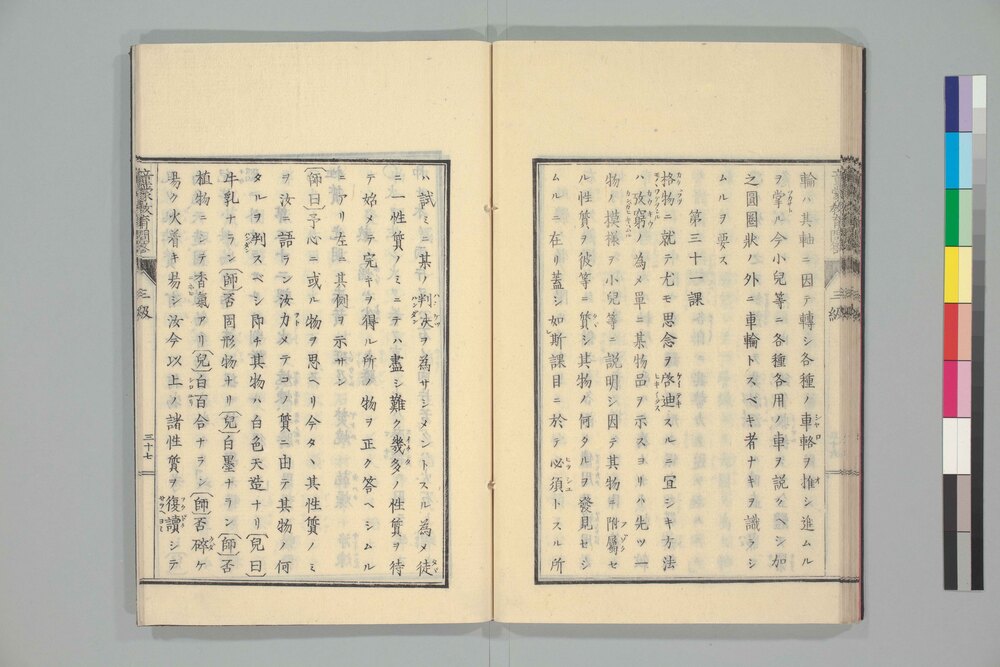 輪ハ其軸ニ因テ轉シ各種ノ車輅ヲ推シ進ムル
ヲ掌ル今小兒等ニ各種各用ノ車ヲ説クヘシ加
之圓圈狀ノ外ニ車輪トスベキ者ナキヲ識ラシ
ムルヲ要ス
第三十一課
格物ニ就テ尤モ思念ヲ啓迪スルニ冝シキ方法
ハ攷窮ノ為メ單ニ某物品ヲ示スヨリハ先ツ一
物ノ摸樣ヲ小兒等ニ説明シ因テ其物ニ附屬セ
ル性質ヲ彼等ニ質シ其物ノ何タルヲ發見セシ
ムルニ在リ蓋シ如斯課目ニ於テ必須トスル所
ハ試ミニ某ノ判决ヲ為サシメントスル為メ徒
ニ一性質ノミニテハ盡シ難ク幾多ノ性質ヲ待
テ始メテ完キヲ得ル所ノ物ヲ正ク答ヘシムル
ニアリ左ニ其例ヲ示サン
(師曰)予心ニ或ル物ヲ思ヘリ今タヽ其性質ノミ
ヲ汝ニ語ラン汝力メテコノ質ニ由テ其物ノ何
タルヲ判スベシ即チ其物ハ白色天造ナリ(兒曰)
牛乳ナラン(師)否固形物ナリ(兒)白墨ナラン(師)否
植物ニシテ香氣アリ(兒)白百合ナラン(師)否碎ケ
易ク火着キ易シ汝今以上ノ諸性質ヲ復讀シテ
三級
三十七